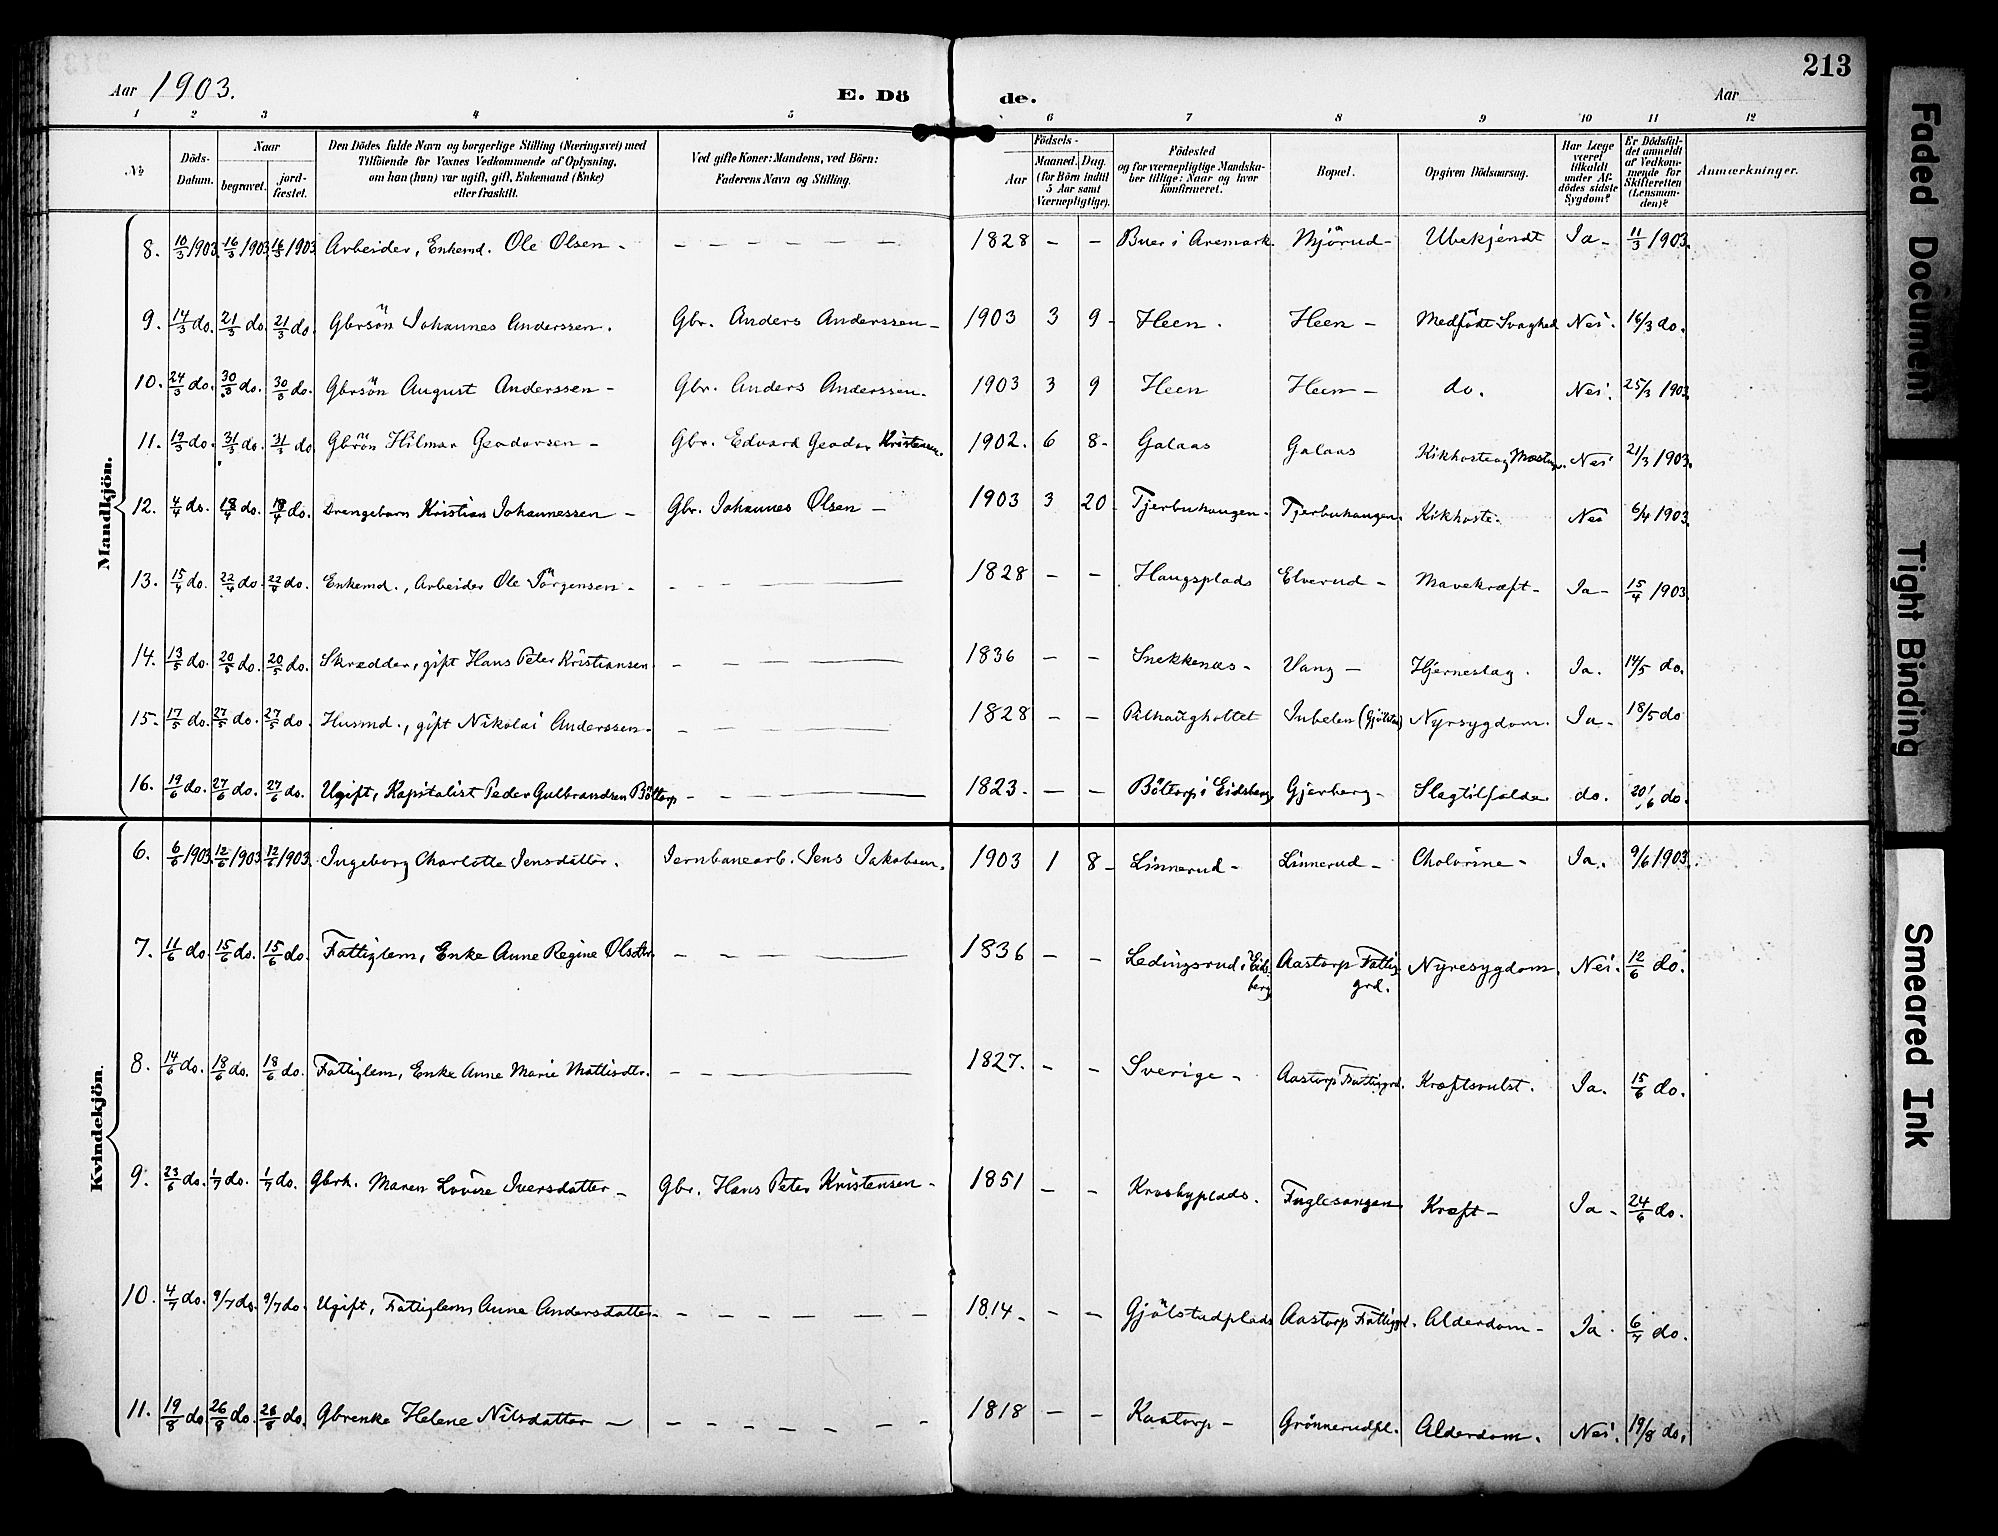 213
Aar 1903. E. Dö de. Aar
1 2 3 4 5 6 7 8 9 10 11 12
№ Döds-Datum. Naar begravet. jord-fæstet. Den Dödes fulde Navn og borgerlige Stilling (Næringsvei) med Tilföiende for Voxnes Vedkommende af Oplysning, om han (hun) var ugift, gift, Enkemand (Enke) eller fraskilt. Ved gifte Koner: Mandens, ved Börn: Faderens Navn og Stilling. Födsels- Aar Maaned. Dag. (for Börn indtil 5 Aar samt Værnepligtige). Födested og for værnepligtige Mandska-ber tillige: Naar og hvor konfirmeret. Bopæl. Opgiven Dödsaarsag. Har Læge været tilkaldt under Af-dödes sidste Sygdom? Er Dödsfal-det anmeldt af Vedkom-mende for Skifteretten (Lensman-den)? Anmærkninger.
Mandkjön.
8. 10/3 1903 16/3 1903 16/3 1903 Arbeider, Enkemd. Ole Olsen - - - - - - - 1828 - - Buer i Aremark. Mjörud - Ubekjendt Ja - 11/3 1903.
9. 14/3 do. 21/3 do. 21/3 do. Gbrsön Johannes Anderssen. Gbr. Anders Anderssen - 1903 3 9 - Heen. Heen - Medfödt Svaghed Nei. 16/3 do.
10. 24/3 do. 30/3 do. 30/3 do. Gbrsön August Anderssen - Gbr. Anders Anderssen. 1903 3 9 Heen Heen - do. Nei. 25/3 1903.
11. 19/3 do. 31/3 do. 31/3 do Gbrön Hilmar Geodorsen - Gbr. Edvard Geodor Kristensen. 1902. 6 8 - Galaas Galaas Kikhoste og Nei 21/3 1903.
12. 4/4 do. 18/4 do. 18/4 do. Drengebarn Kristian Johannessen - Gbr. Johannes Olsen - 1903 3 20 - Tjerbuhaugen - Tjerbuhaugen. Kikhoste. Nei 6/4 1903
13. 15/4 do. 22/4 do. 22/4 do. Enkemd., Arbeider Ole Jörgensen - - - - 1828 - - Haugsplads Elverud - Mavekræft - Ja - 15/4 1903.
14. 13/5 do. 20/5 do. 20/5 do. Skredder, gift Hans Peter Kristiansen - - - - 1836 - - Snekkenæs - Vang - Hjerneslag. Ja. 14/5 do.
15. 17/5 do. 27/5 do. 27/5 do. Husmd., gift Nikolai Anderssen - - - - 1828 - - Pilhaugholtet (Gjölstad) Nyrsygdom. Ja - 18/5 do
16. 19/6 do. 27/6 do. 27/6 do. Ugift, Kapitalist Peder Gulbrandsen Böltorp - - - - 1823. - - Böltorp i Eidsberg Gjerberg - Slagtilfælde do. 20/6 do.
Kvindekjön.
6. 6/6 1903. 12/6 1903 12/6 1903. Ingeborg Charlotte Jensdatter. Jernbanearb. Jens Jakobsen. 1903 1 8 - Linnerud - Linnerud - Cholorine - Ja. 9/6 1903.
7. 11/6 do. 15/6 do. 15/6 do. Fattiglem, Enke Anne Regine Olsdtr. - - - - 1836 - - Ledingsrud i Eids-berg Aastorp Fattig grd. Nyresygdom. Nei. 12/6 do.
8. 14/6 do. 18/6 do. 18/6 do. Fattiglem, Enke Anne Marie Mattisdtr. - - - 1827. - - Sverige - Aastorp Fattigrd. Kræftsvulst. Ja. 15/6 do.
9. 23/6 do. 1/7 do. 1/7 do. Gbrk. Maren Lovise Iversdatter - Gbr. Hans Peter Kristensen - 1851 - - Krosbyplads. Fuglesangen Kræft - Ja - 24/6 do.
10. 4/7 do. 9/7 do. 9/7 do. Ugift, Fattiglem Anne Andersdatter - - - - - - 1814 - - - Gjölstadplads Aastorp Fattigrd. Alderdom - Ja. 6/7 do.
11. 19/8 do. 26/8 do. 26/8 do. Gbrenke Helene Nilsdatter - - - - - - - 1818 - - Kastorp - Grönnerudpl. Alderdom. Nei. 19/8 do.
Faded Document
Tight Binding
Smeared Ink